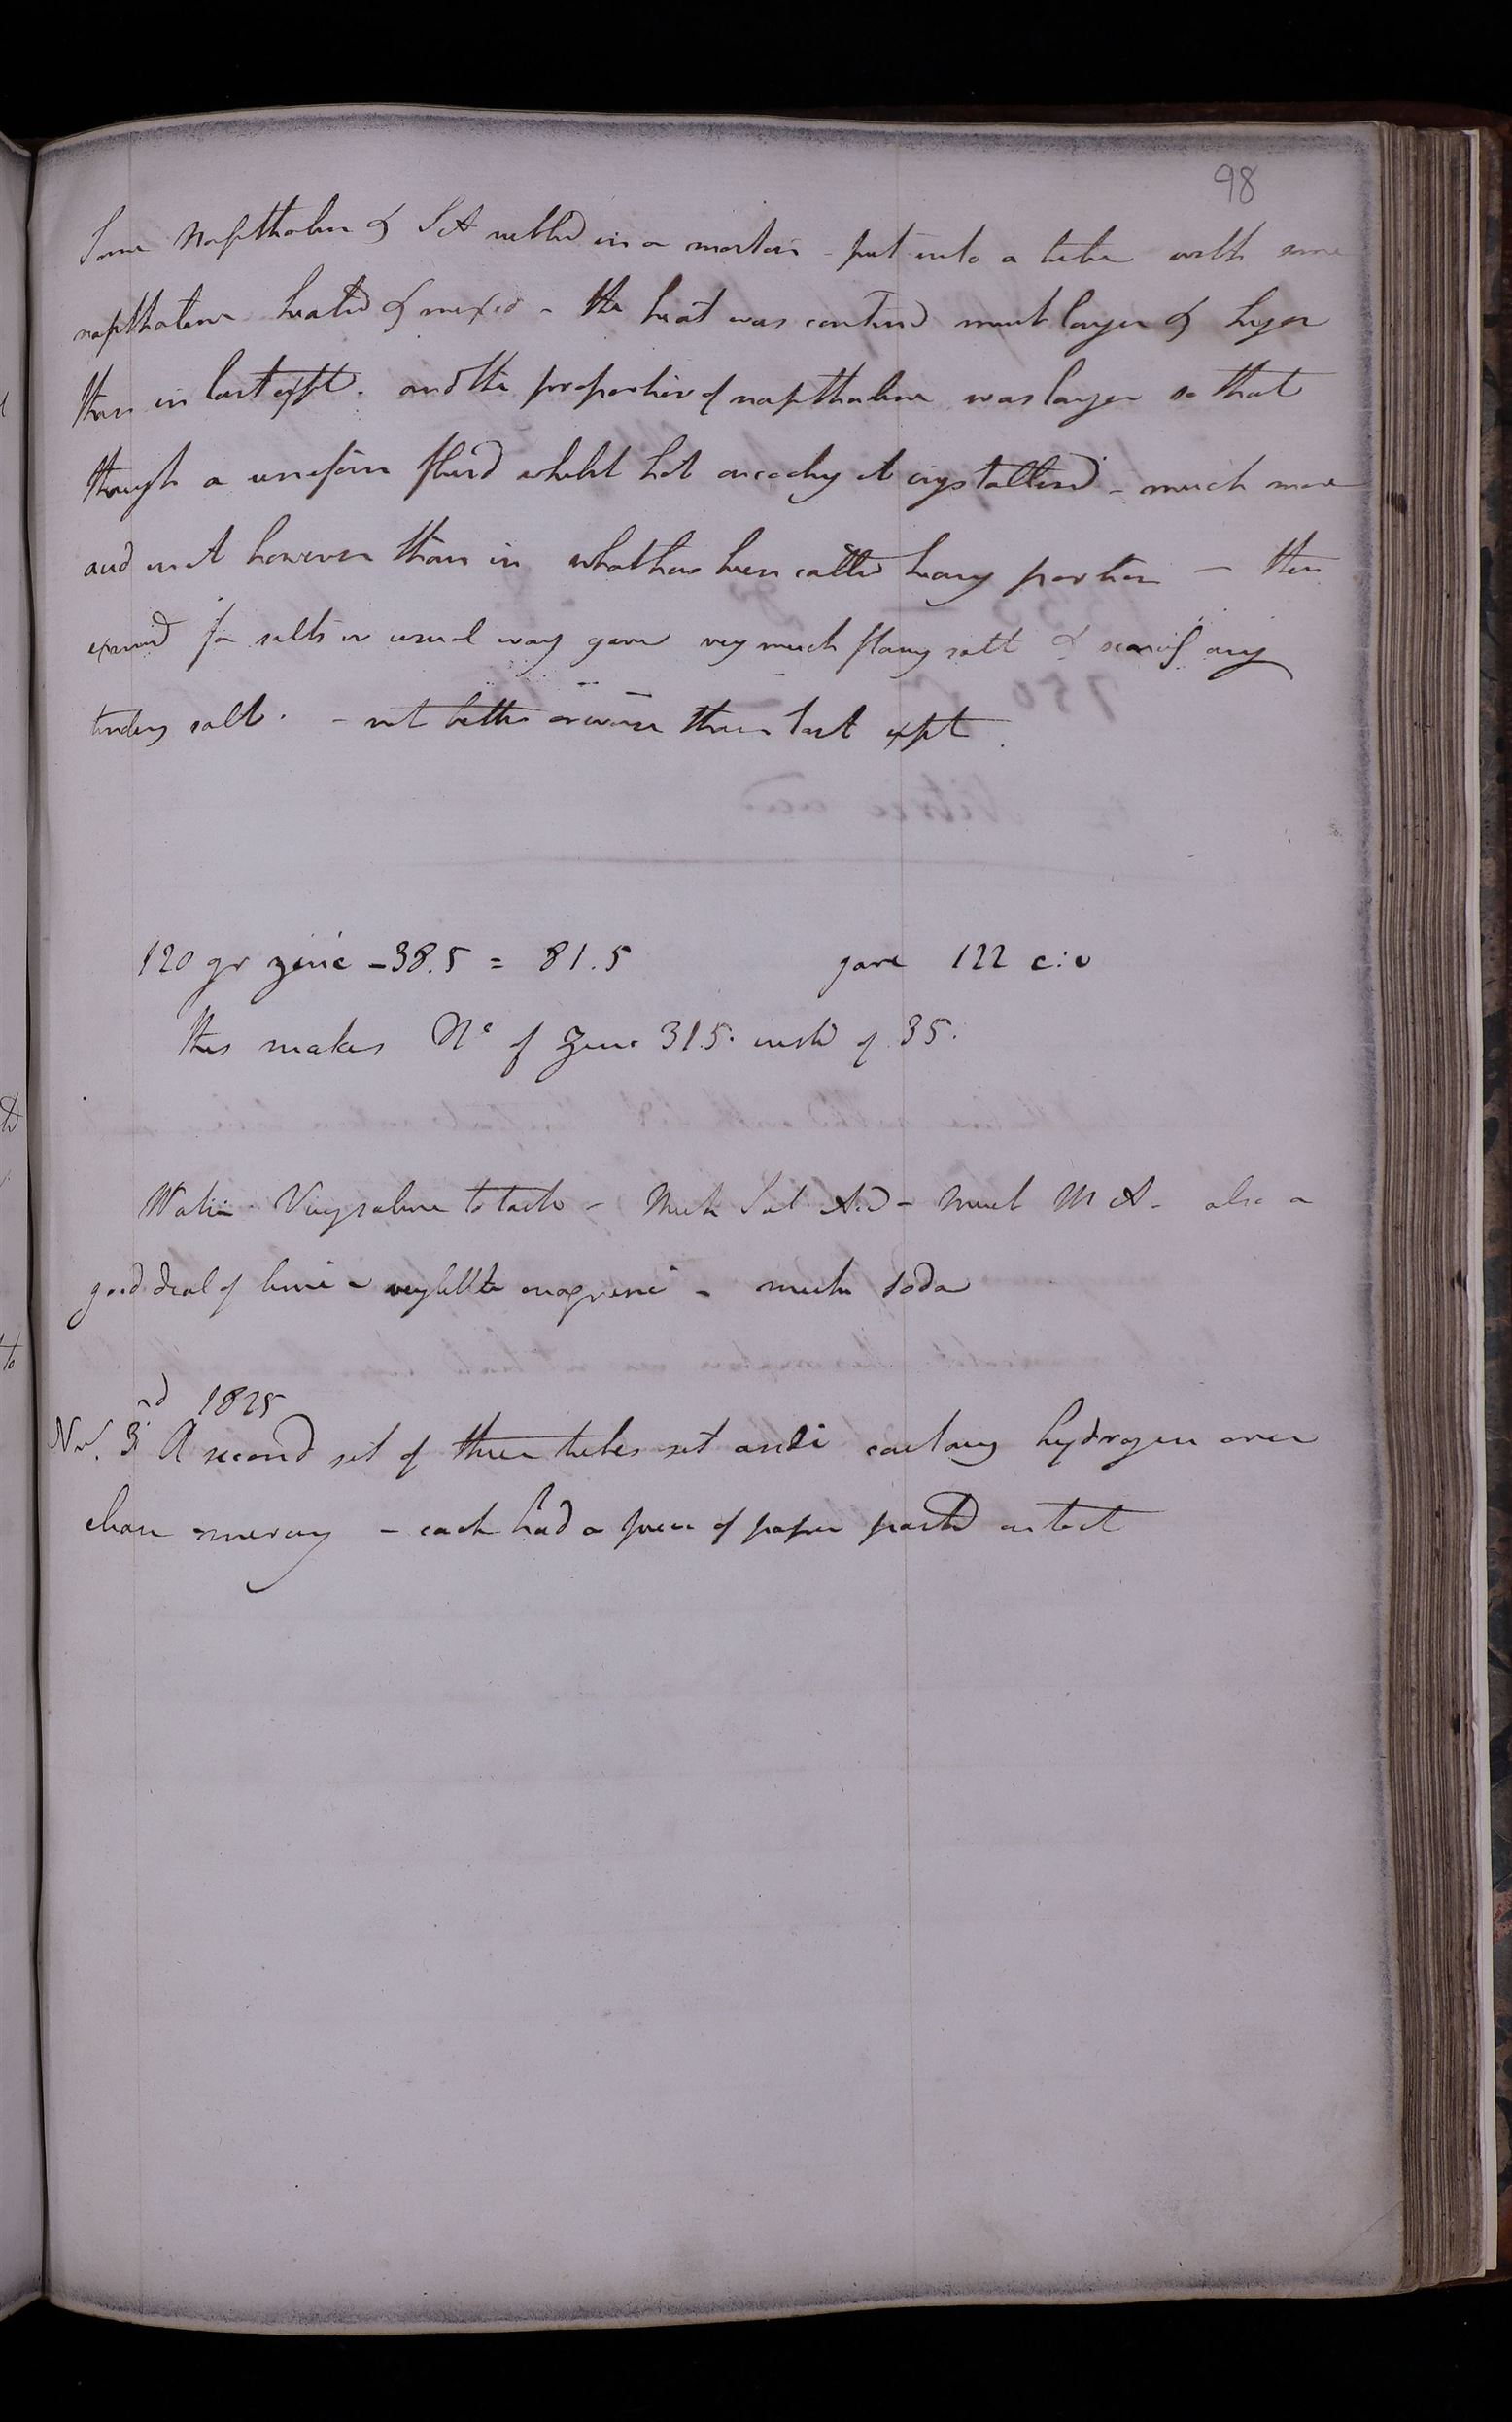 98
Some Napthaline & S A rubbed in a mortar - put into a tube with some
napthaline heated & mixed - the heat was continued much longer & higher
than in last expt. and the proportion of napthaline was larger so that
though a uniform fluid whilst hot on cooling it crystallised - much more
acid in it however than in what has been called heavy portion - then
examd for salts in usual way gave very much flamy salt & scarcely any
tindery salt. - not better or worse than last expt.
120 gr zinc - 38.5 = 81.5 gave 122 c:i
this makes No of Zinc 31.5. instd of 35.
Water Very saline to taste - Much Sul Ad - Much M A - also a
good deal of lime - very little magnesi - much soda
Nov. 3rd 1825
A second set of three tubes set aside containg hydrogen over
clean mercury - each had a piece of paper pasted on